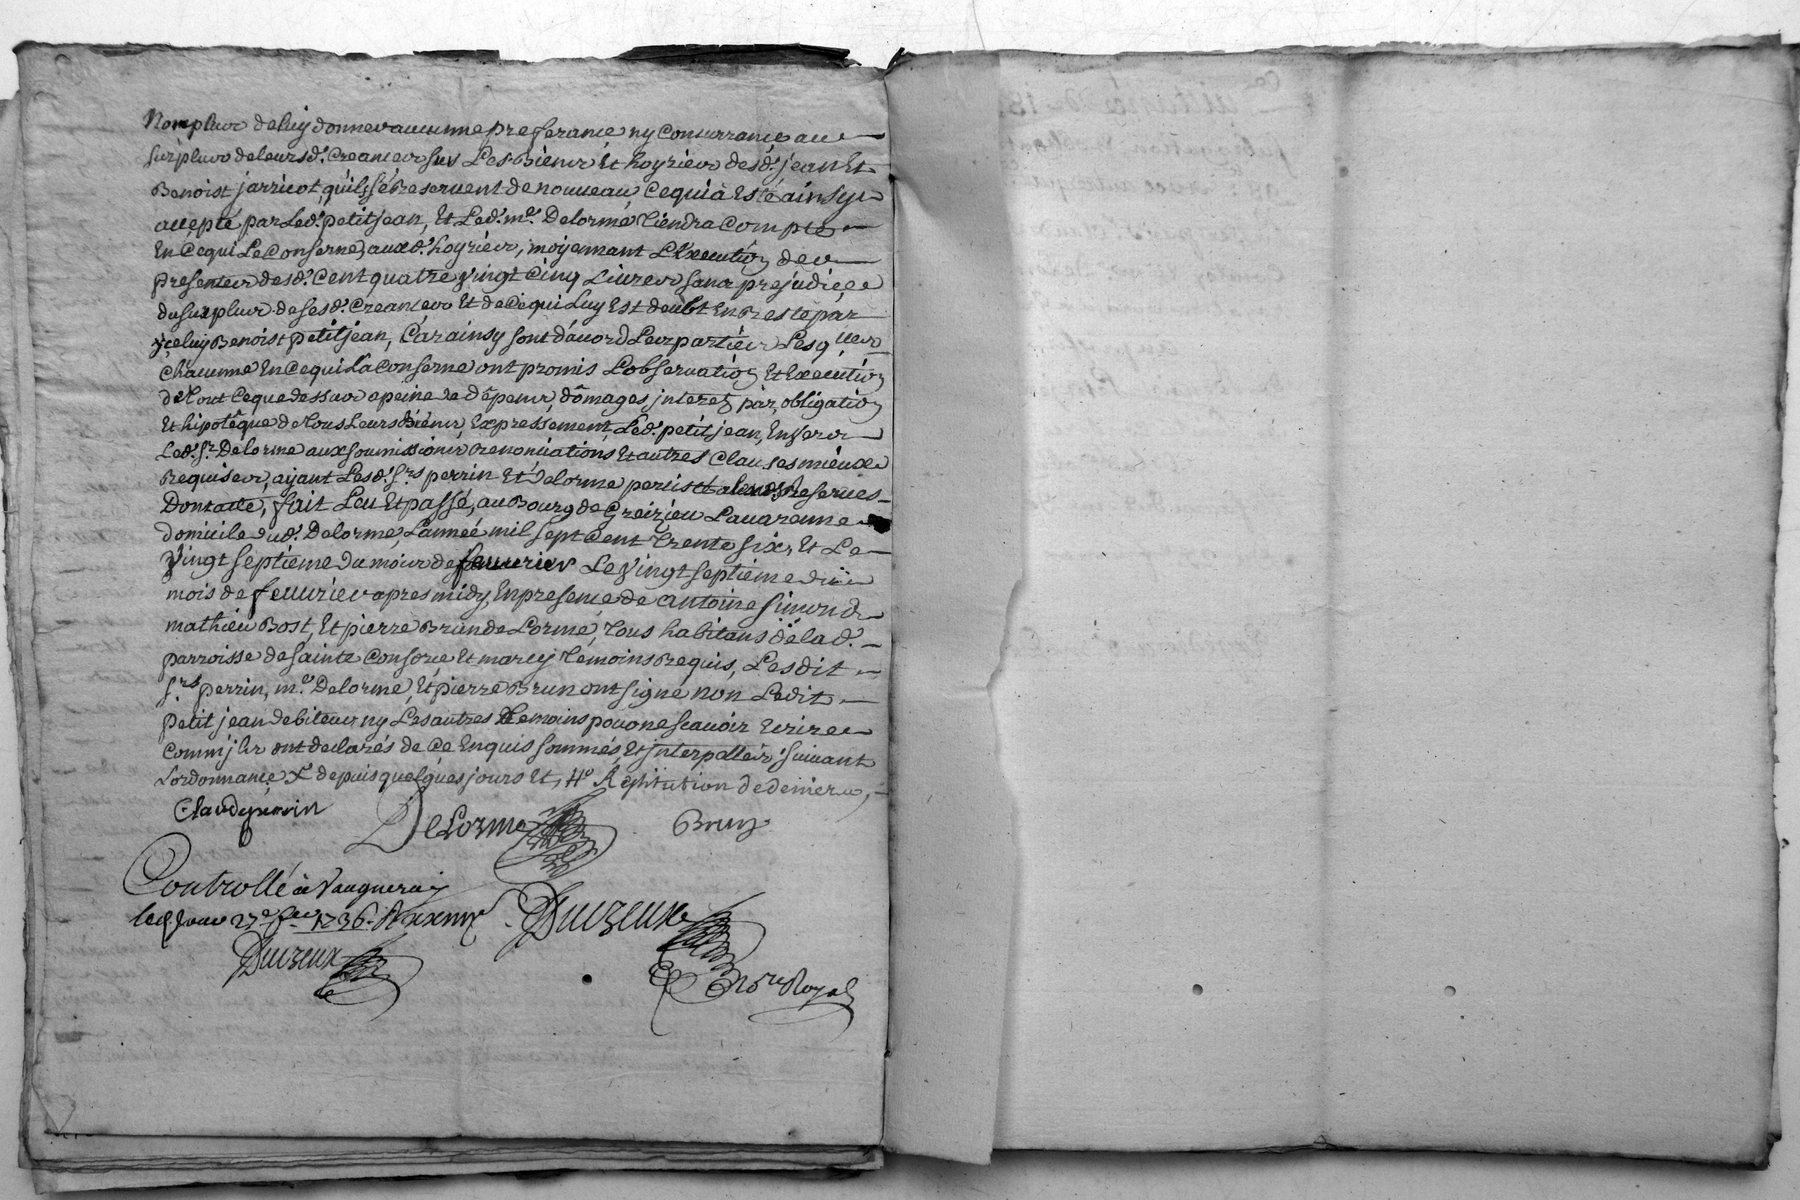 Nomplus deluy donner aucunne preferance, ny Concurrance, au
surplus deleurs d. Creances sur Les Biens et hoyries desd. jean Et
Benoist jarricot, quils sé Reservent de nouveau, Cequi à Esté ainsy
accepté par Led. petitjean, Et Led. me. Delorme Tiendra Compte
En Cequi Le Conserne, auxd. hoyries, moyennant L'Execution des
presentes desd. Cent quatre vingt Cinq Livres sans prejudice
du surplus de sesd. Creances Et de Cequi Luy Est deubt En Reste par
yceluy Benoist petitjean, Car ainsy sont d'acord Les parties Lesqlles
Chacunne En Cequi La Conserne ont promis L'observation Et Execution
de Tout Ceque dessus a peine de dépens, dômages interetz par, obligation
Et hipotêque de Tous Leurs Biens, Expressement, Led. petitjean, Envers
Led. sr. Delorme aux soumissions Renonciations, Et autres Clauses mieux
Requises, ayant Lesd. srs perrin Et Delorme Reserves
Dont acte, fait Leu Et passé, au Bourg de Greizieu Lavarenne
domicile dud. Delorme, L'année mil sept Cent Trente six, Et Le
vingt septieme du mois de fevvrier Le vingt septieme du
mois de fevvrier apres midy, En presence de antoine simond
mathieu Bost, Et pierre Brun de Lorme, Tous habitans de lad.
parroisse de sainte Consorce Et marcy Temoins Requis, Lesdit
srs perrin, me. Delorme, Et pierre Brun ont signé non Ledit
petit jean debiteur ny Les autres Temoins pour ne scavoir Ecrire
Comm'jls ont declarés de Ce Enquis sommés, Et jnterpallés, suivant
L'ordonnance, depuis quelques jours Et,
Claude perrin
DeLorme
Brun
Controllé a Vaugneray
led. Jour 27e. fev. 1736.
Duizeux
Duizeux
Nore Royal